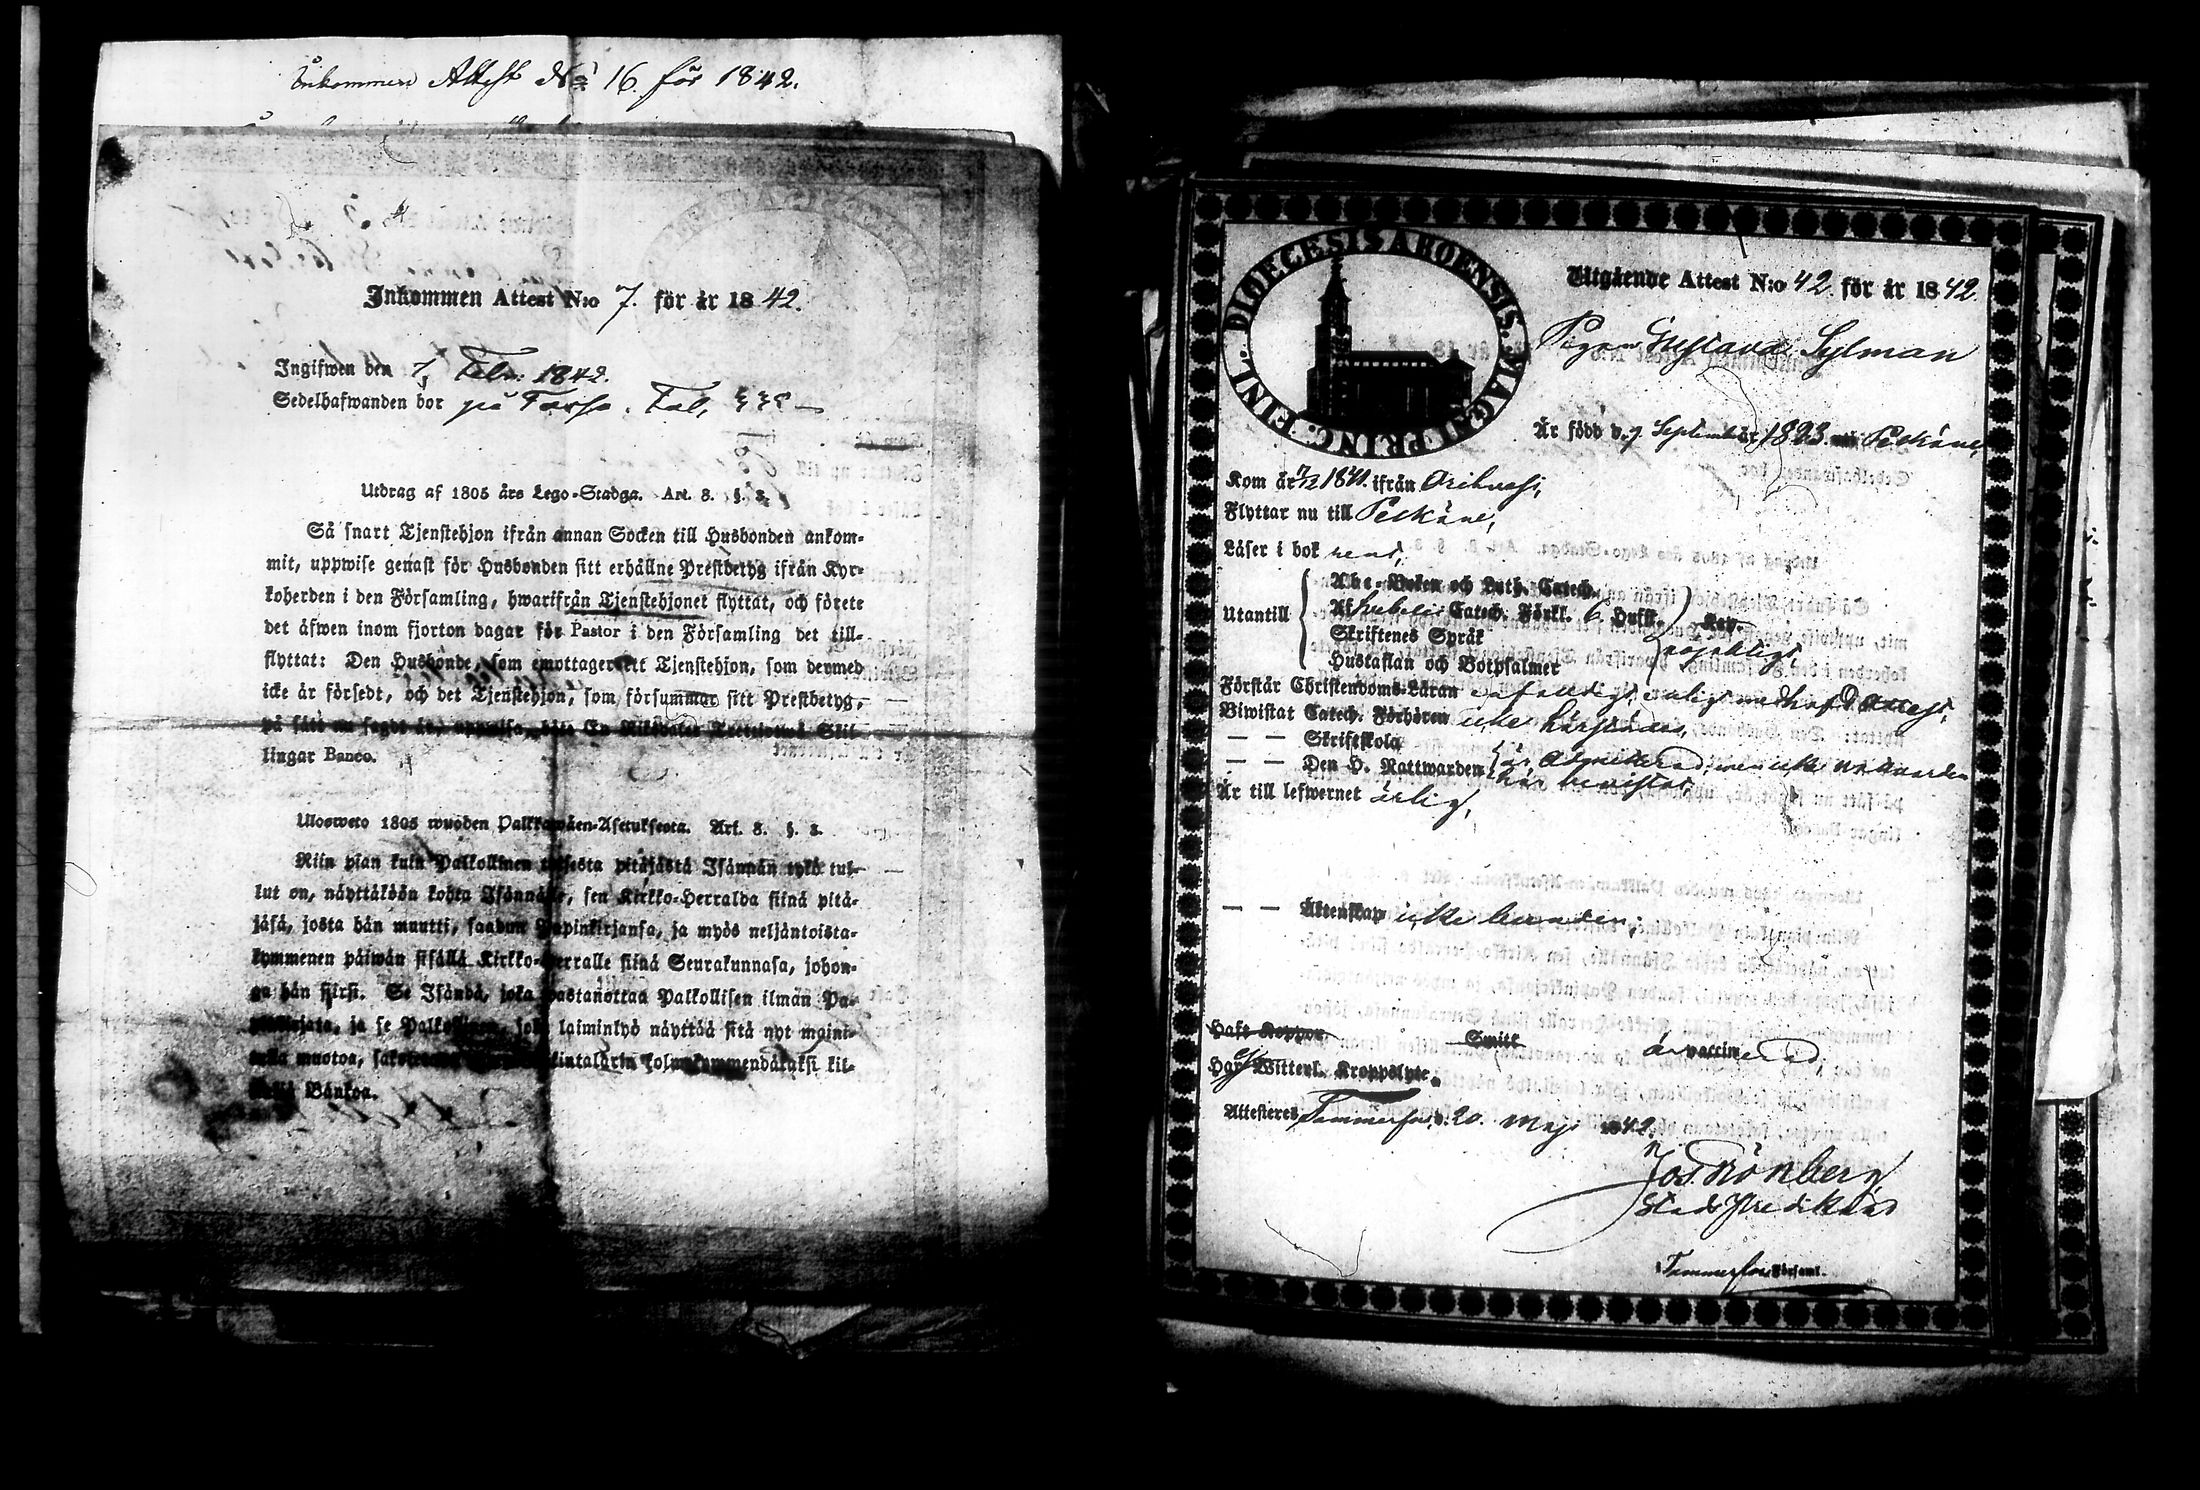 Inkommen Attest No 16 för 1842.
Inkommen Attest N:o 7. för år 1842.
Ingifwen den 7 Feb: 1842.
Sedelhafwanden bor på Tav
Utdrag af 1805 års Lego-Stadga. Art. 8. §. 3.
Så snart Tjenstehjon ifrån annan Socken till Husbonden ankom-
mit, uppwise genast för Husbonden sitt erhållne Prestbetyg ifrån Kyr-
koherden i den Församling, hwarifrån Tjenstehjonet flyttat, och förete
det äfwen inom fjorton dagar för Pastor i den Församling det till-
flyttat: Den Husbonde, som emottager ett Tjenstehjon, som dermed
icke är försedt, och det Tjenstehjon, som försummar sitt Prestbetyg,
på sätt nu sagdt är, uppwisa, böte En Riksdaler Trettiotwå Skil-
lingar Banco.
Ulosweto 1805 wuoden Palkkawäen-Asetuksesta. Art. 8. §. 3.
Niin pian kuin Palkollinen toisesta pitäjästä Isännän tykö tul-
lut on, näyttäköön kohta Isännälle, sen Kirkko-Herralda siinä pitä-
jäsä, josta hän muutti, saadun Papinkirjansa, ja myös neljäntoista-
kymmenen päiwän sisällä Kirkko-Herralle siinä Seurakunnasa, johon-
ga hän siirsi. Se Isändä, joka wastanottaa Palkollisen ilman Pa-
pinkirjata, ja se Palkollinen, joka laiminlyö näyttää sitä nyt maini-
tulla muotoa, kolmekymmendäkaksi kil-
lingiä Bankoa.
DIOECESIS ABOENSIS. MAGNI PRINC. FINL.
Utgående Attest N:o 42 för år 1842.
Pigan Gustava Sylman
Är född d. 7 September 1823 Pelkäne,
Kom år 7/12 1841. ifrån Orihvesi,
Flyttar nu till Pelkäne,
Läser i bok rent,
Utantill
Abc-Boken och Luth. Catech.
Af Svebelii Catech. Förkl. 6. Hufst.
Skriftenes Språk
Hustaflan och Botpsalmer
nöjaktigt,
Förstår Christendoms-Läran enfaldigt, enligt medhafd attest,
Biwistat Catech. Förhören icke härstädes,
— — Skriftskola
— — Den H. Nattwarden är Admitterad, men icke nattvarden
här bevistat,
Är till lefwernet ärlig,
— — Äktenskap icke bunden;
Haft Koppor Smitt är vaccinerad,
Har ej Witterl. Kroppslyte.
Attesteres Tammerfors, d. 20. Maji 1842.
Jos. Grönberg
Stads Predikant
Tammerfors Församl.